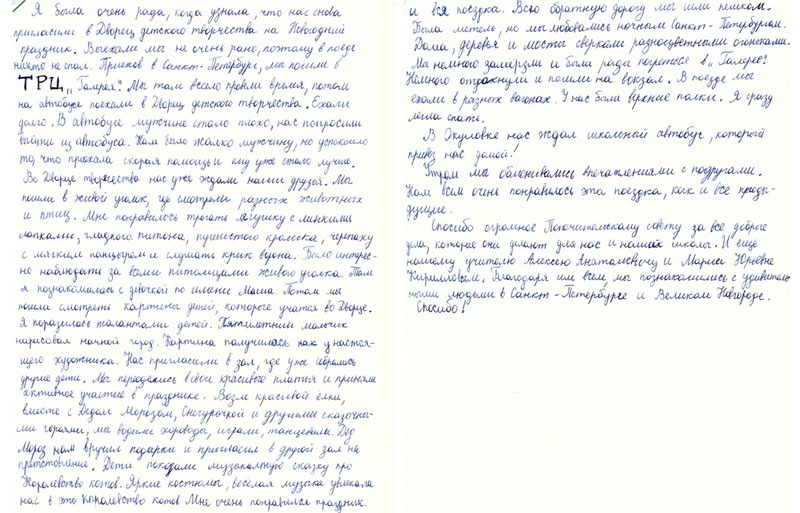 Я была очень рада, когда узнала, что нас снова
пригласили в Дворец детского творчества на Новогодний
праздник. Выехали мы не очень рано, поэтому в поезде
никто не спал. Приехав в Санкт-Петербург, мы пошли в
ТРЦ „Галерея". Мы там весело провели время, потом
на автобусе поехали в Дворец детского творчества. Ехали
долго. В автобусе мужчине стало плохо, нас попросили
выйти из автобуса. Нам было жалко мужчину, но успокоило
то, что приехала скорая помощь и ему уже стало лучше.
Во Дворце творчества нас уже ждали наши друзья. Мы
пошли в живой уголок, где смотрели разных животных
и птиц. Мне понравилось трогать лягушку с липкими
лапками, гладкого питона, пушистого кролика, черепаху
с мягким панцырем и слушать крик ворона. Было интерес-
но наблюдать за всеми питомцами живого уголка. Там
я познакомилась с девочкой по имени Маша. Потом мы
пошли смотреть картины детей, которые учатся во Дворце.
Я поразилась талантами детей. Пятилетний мальчик
нарисовал ночной город. Картина получилась как у настоя-
щего художника. Нас пригласили в зал, где уже собрались
другие дети. Мы переоделись в свои красивые платья и приняли
активное участие в празднике. Возле красивой ёлки,
вместе с Дедом Морозом, Снегурочкой и другими сказочны-
ми героями, мы водили хороводы, играли, танцевали. Дед
Мороз нам вручил подарки и пригласил в другой зал на
представление. Дети показали музыкальную сказку про
Королевство котов. Яркие костюмы, весёлая музыка увлекала
нас в это Королевство котов. Мне очень понравился праздник
и вся поездка. Всю обратную дорогу мы шли пешком.
Была метель, но мы любовались ночным Санкт-Петербургом.
Дома, деревья и мосты сверкали разноцветными огоньками.
Мы немного замёрзли и были рады погреться в „Галерее".
Немного отдохнули и пошли на вокзал. В поезде мы
ехали в разных вагонах. У нас были верхние полки. Я сразу
легла спать.
В Окуловке нас ждал школьный автобус, который
привёз нас домой!
Утром мы обменивались впечатлениями с подругами.
Нам всем очень понравилось эта поездка, как и все преды-
дущие.
Спасибо огромное Попечительскому совету за все добрые
дела, которые они делают для нас и нашей школы. И ещё
нашему учителю Алексею Анатольевичу и Марине Юрьевне
Кирилловым. Благодаря им всем, мы познакомились с удивитель-
ными людьми в Санкт-Петербурге и Великом Новгороде.
Спасибо!